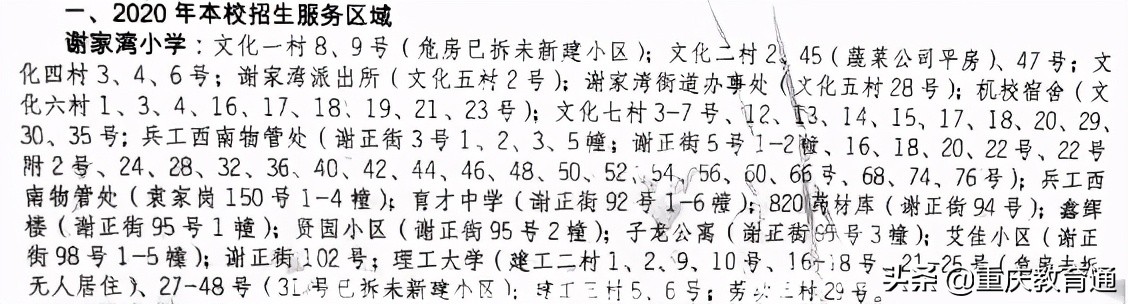 一、2020年本校招生服务区域
谢家湾小学：文化一村8、9号（危房已拆未新建小区）；文化二村2、45（蔬菜公司平房）、47号；文
化四村3、4、6号；谢家湾派出所（文化五村2号）；谢家湾街道办事处（文化五村28号）；机校宿舍（文
化六村1、3、4、16、17、18、19、21、23号）；文化七村3-7号、12、13、14、15、17、18、20、29、
30、35号；兵工西南物管处（谢正街3号1、2、3、5幢；谢正街5号1-2幢、16、18、20、22号、22号
附2号、24、28、32、36、40、42、44、46、48、50、52、54、56、60、66号、68、74、76号）；兵工西
南物管处（袁家岗150号1-4幢）；育才中学（谢正街92号1-6幢）；820药材库（谢正街94号）；鑫辉
楼（谢正街95号1幢）；贤国小区（谢正街95号2幢）；子龙公寓（谢正街95号3幢）；艾佳小区（谢正
街98号1-5幢）；谢正街102号；理工大学（建工二村1、2、9、10号、16-18号、21-25号（危房未拆
无人居住）、27-48号（31号已拆未新建小区）；建工三村5、6号；劳动三村29号。
头条@重庆教育通